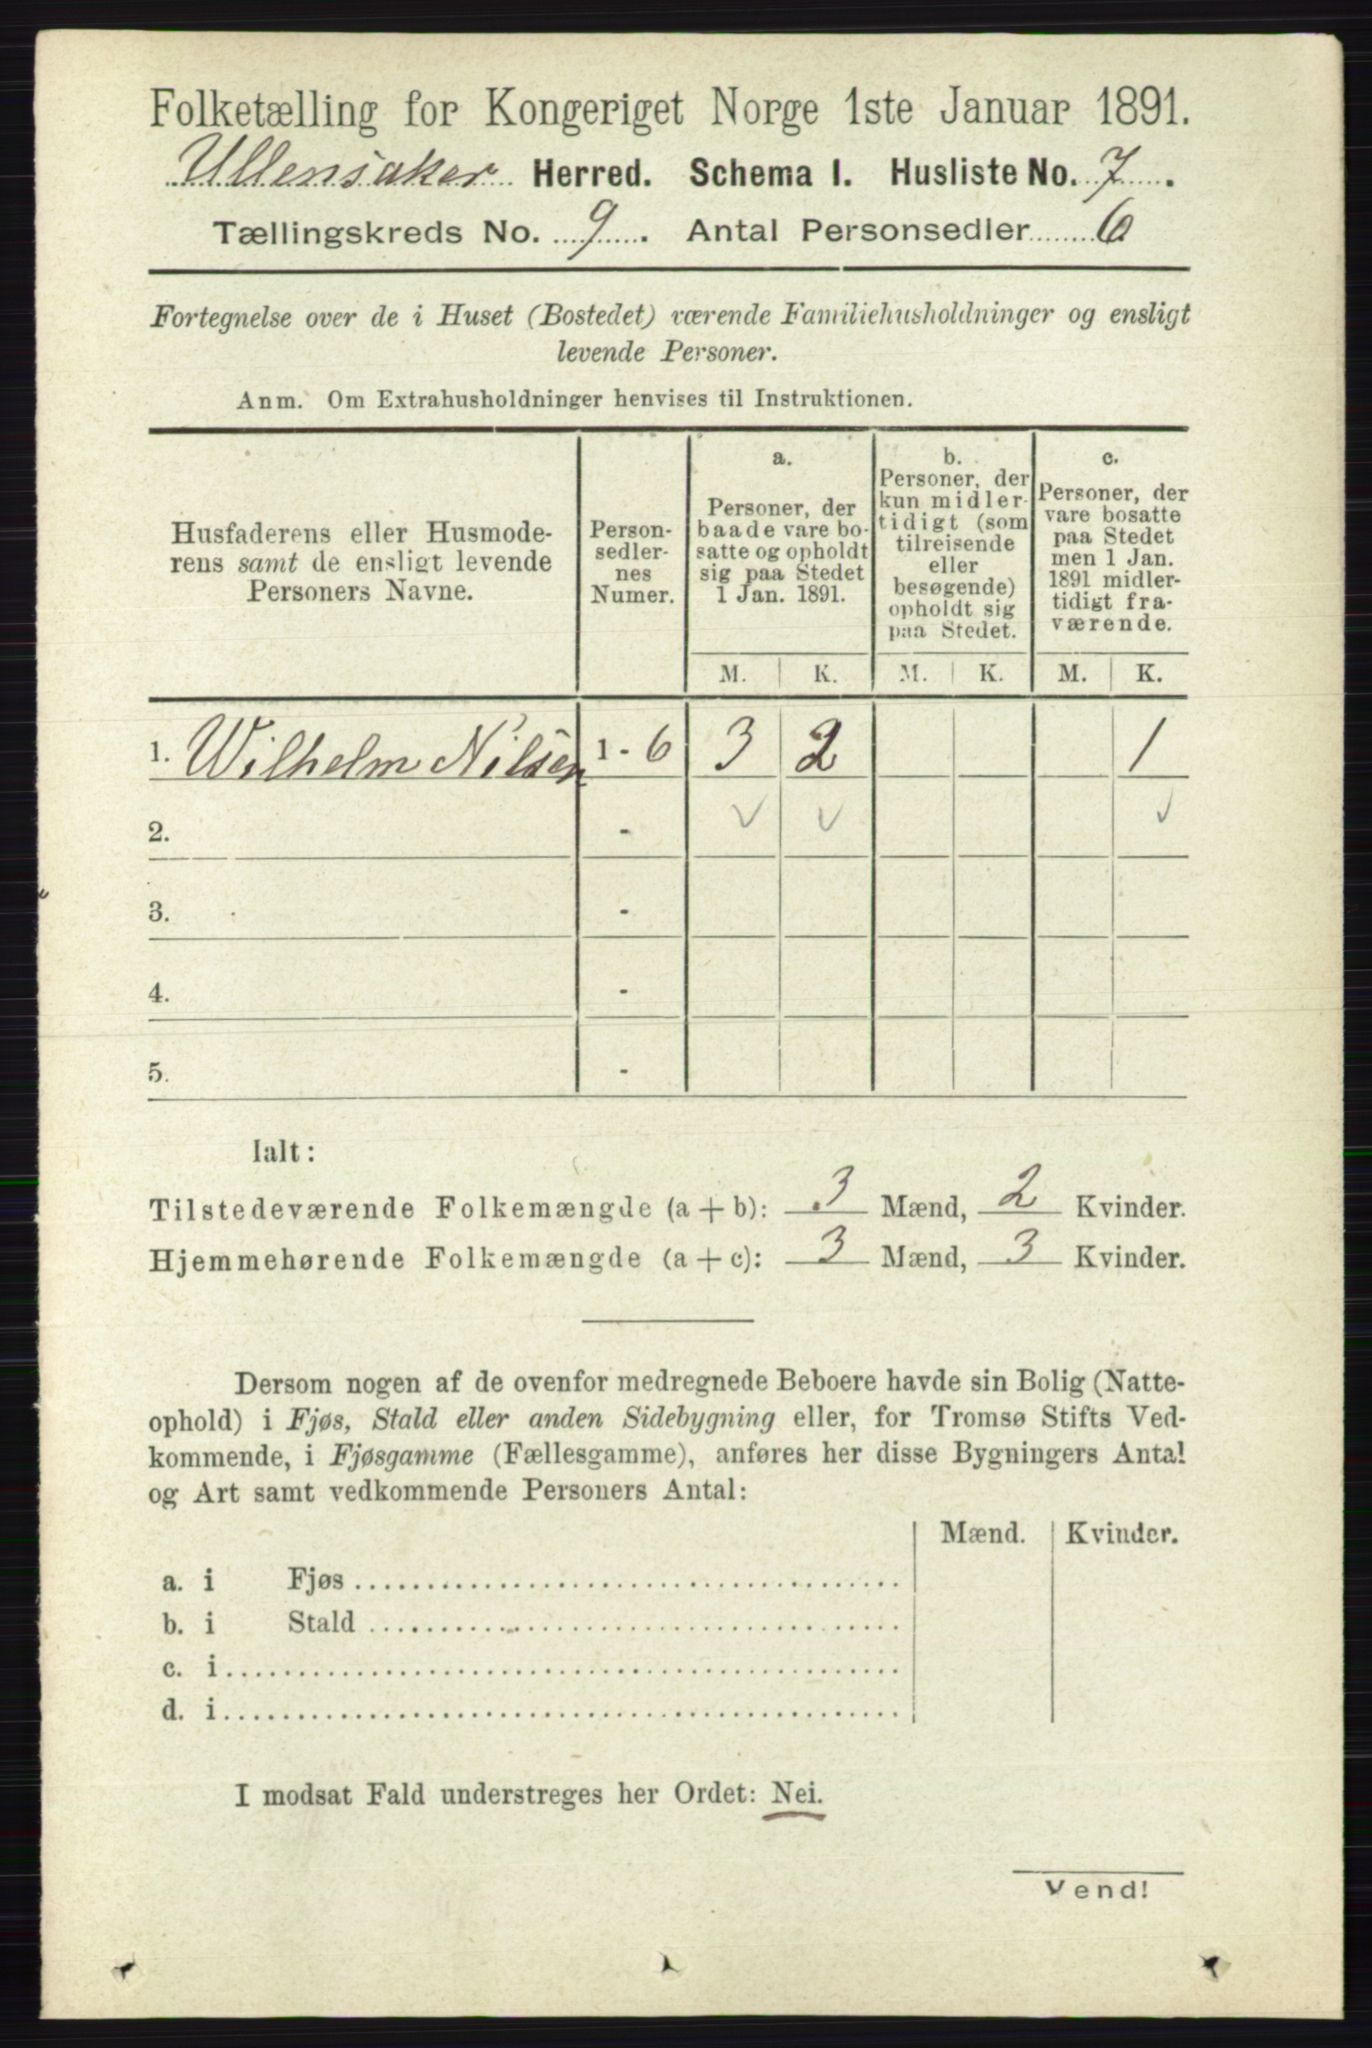 Folketælling for Kongeriget Norge 1ste Januar 1891.
Ullensaker Herred. Schema I. Husliste No. 7.
Tællingskreds No. 9. Antal Personsedler 6
Fortegnelse over de i Huset (Bostedet) værende Familiehusholdninger og ensligt
levende Personer.
Anm. Om Extrahusholdninger henvises til Instruktionen.
Husfaderens eller Husmode-
rens samt de ensligt levende
Personers Navne.
Person-
sedler-
nes
Numer.
a.
Personer, der
baade vare bo-
satte og opholdt
sig paa Stedet
1 Jan. 1891.
b.
Personer, der
kun midler-
tidigt (som
tilreisende
eller
besøgende)
opholdt sig
paa Stedet.
c.
Personer, der
vare bosatte
paa Stedet
men 1 Jan.
1891 midler-
tidigt fra-
værende.
M. K. M. K. M. K.
1. Wilhelm Nilsen 1 - 6 3 2 1
2. - ✓ ✓ ✓
3. -
4. -
5. -
Ialt:
Tilstedeværende Folkemængde (a + b): 3 Mænd, 2 Kvinder.
Hjemmehørende Folkemængde (a + c): 3 Mænd, 3 Kvinder.
Dersom nogen af de ovenfor medregnede Beboere havde sin Bolig (Natte-
ophold) i Fjøs, Stald eller anden Sidebygning eller, for Tromsø Stifts Ved-
kommende, i Fjøsgamme (Fællesgamme), anføres her disse Bygningers Antal
og Art samt vedkommende Personers Antal:
Mænd. Kvinder.
a. i Fjøs
b. i Stald
c. i
d. i
I modsat Fald understreges her Ordet: Nei.
Vend!